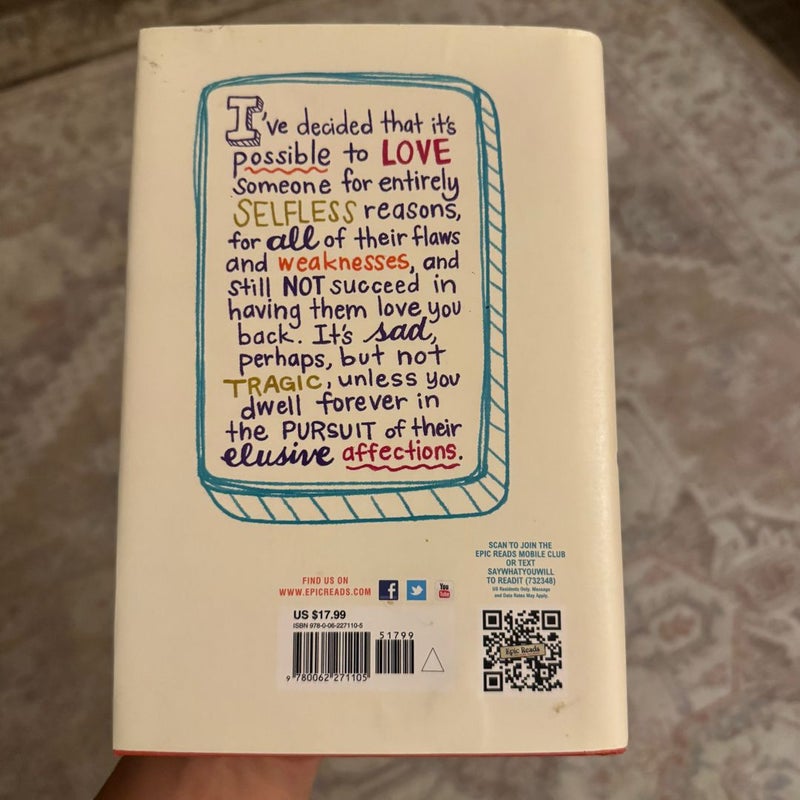 I've decided that it's
possible to LOVE
someone for entirely
SELFLESS reasons,
for all of their flaws
and weaknesses, and
still NOT succeed in
having them love you
back. It's sad,
perhaps, but not
TRAGIC, unless you
dwell forever in
the PURSUIT of their
elusive affections.
SCAN TO JOIN THE
EPIC READS MOBILE CLUB
OR TEXT
SAYWHATYOUWILL
TO READIT (732348)
US Residents Only. Message
and Data Rates May Apply.
FIND US ON
WWW.EPICREADS.COM
f
You
Tube
US $17.99
ISBN 978-0-06-227110-5
51799
9 780062 271105
Epic Reads